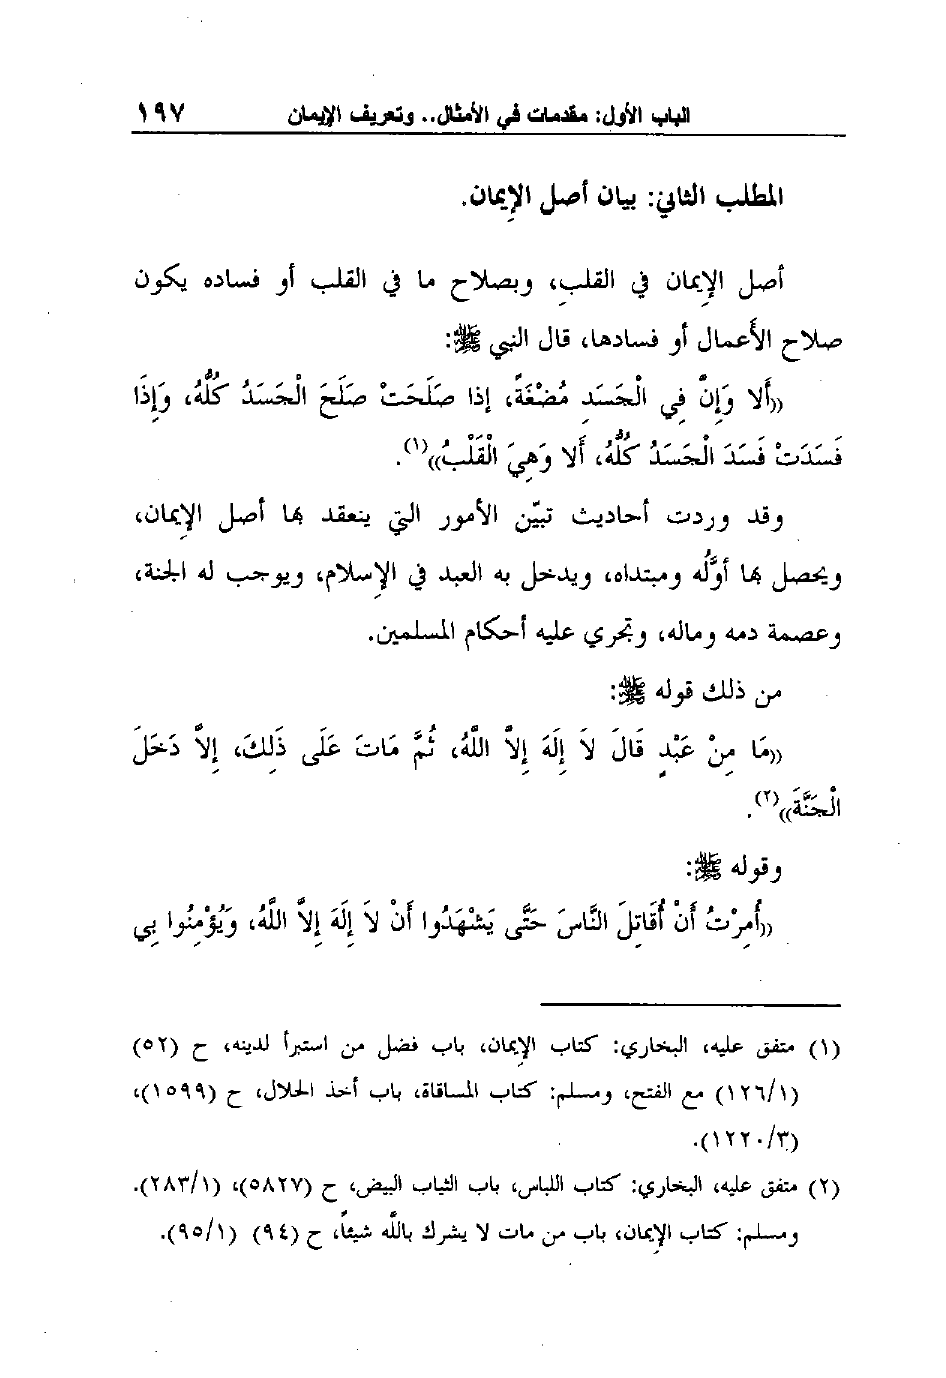 الباب الأول: مقدمات في الأمثال.. وتعريف الإيمان ١٩٧
المطلب الثاني: بيان أصل الإيمان.
أصل الإيمان في القلب، وبصلاح ما في القلب أو فساده يكون
صلاح الأعمال أو فسادها، قال النبي ﷺ:
((ألا وَإِنَّ فِي الْجَسَدِ مُضْغَةً، إذا صَلَحَتْ صَلَحَ الْجَسَدُ كُلُّهُ، وَإِذَا
فَسَدَتْ فَسَدَ الْجَسَدُ كُلُّهُ، أَلا وَهِيَ الْقَلْبُ))(١).
وقد وردت أحاديث تبيّن الأمور التي ينعقد بها أصل الإيمان،
ويحصل بها أوَّلُه ومبتداه، ويدخل به العبد في الإسلام، ويوجب له الجنة،
وعصمة دمه وماله، وتجري عليه أحكام المسلمين.
من ذلك قوله ﷺ:
((مَا مِنْ عَبْدٍ قَالَ لاَ إِلَهَ إِلاَّ اللَّهُ، ثُمَّ مَاتَ عَلَى ذَلِكَ، إِلاَّ دَخَلَ
الْجَنَّةَ))(٢).
وقوله ﷺ:
((أُمِرْتُ أَنْ أُقَاتِلَ النَّاسَ حَتَّى يَشْهَدُوا أَنْ لاَ إِلَهَ إِلاَّ اللَّهُ، وَيُؤْمِنُوا بِي
(١) متفق عليه، البخاري: كتاب الإيمان، باب فضل من استبرأ لدينه، ح (٥٢)
(١٢٦/١) مع الفتح، ومسلم: كتاب المساقاة، باب أخذ الحلال، ح (١٥٩٩)،
(١٢٢٠/٣).
(٢) متفق عليه، البخاري: كتاب اللباس، باب الثياب البيض، ح (٥٨٢٧)، (٢٨٣/١).
ومسلم: كتاب الإيمان، باب من مات لا يشرك بالله شيئاً، ح (٩٤) (٩٥/١).